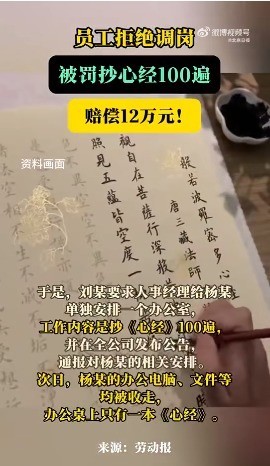 微博视频号
员工拒绝调岗
被罚抄心经100遍
赔偿12万元！
资料画面
般若波罗蜜多心
唐三藏法師
觀自在菩薩行深般
照見五蘊皆空度一
于是，刘某要求人事经理给杨某
单独安排一个办公室，
工作内容是抄《心经》100遍，
并在全公司发布公告，
通报对杨某的相关安排。
次日，杨某的办公电脑、文件等
均被收走，
办公桌上只有一本《心经》。
来源：劳动报